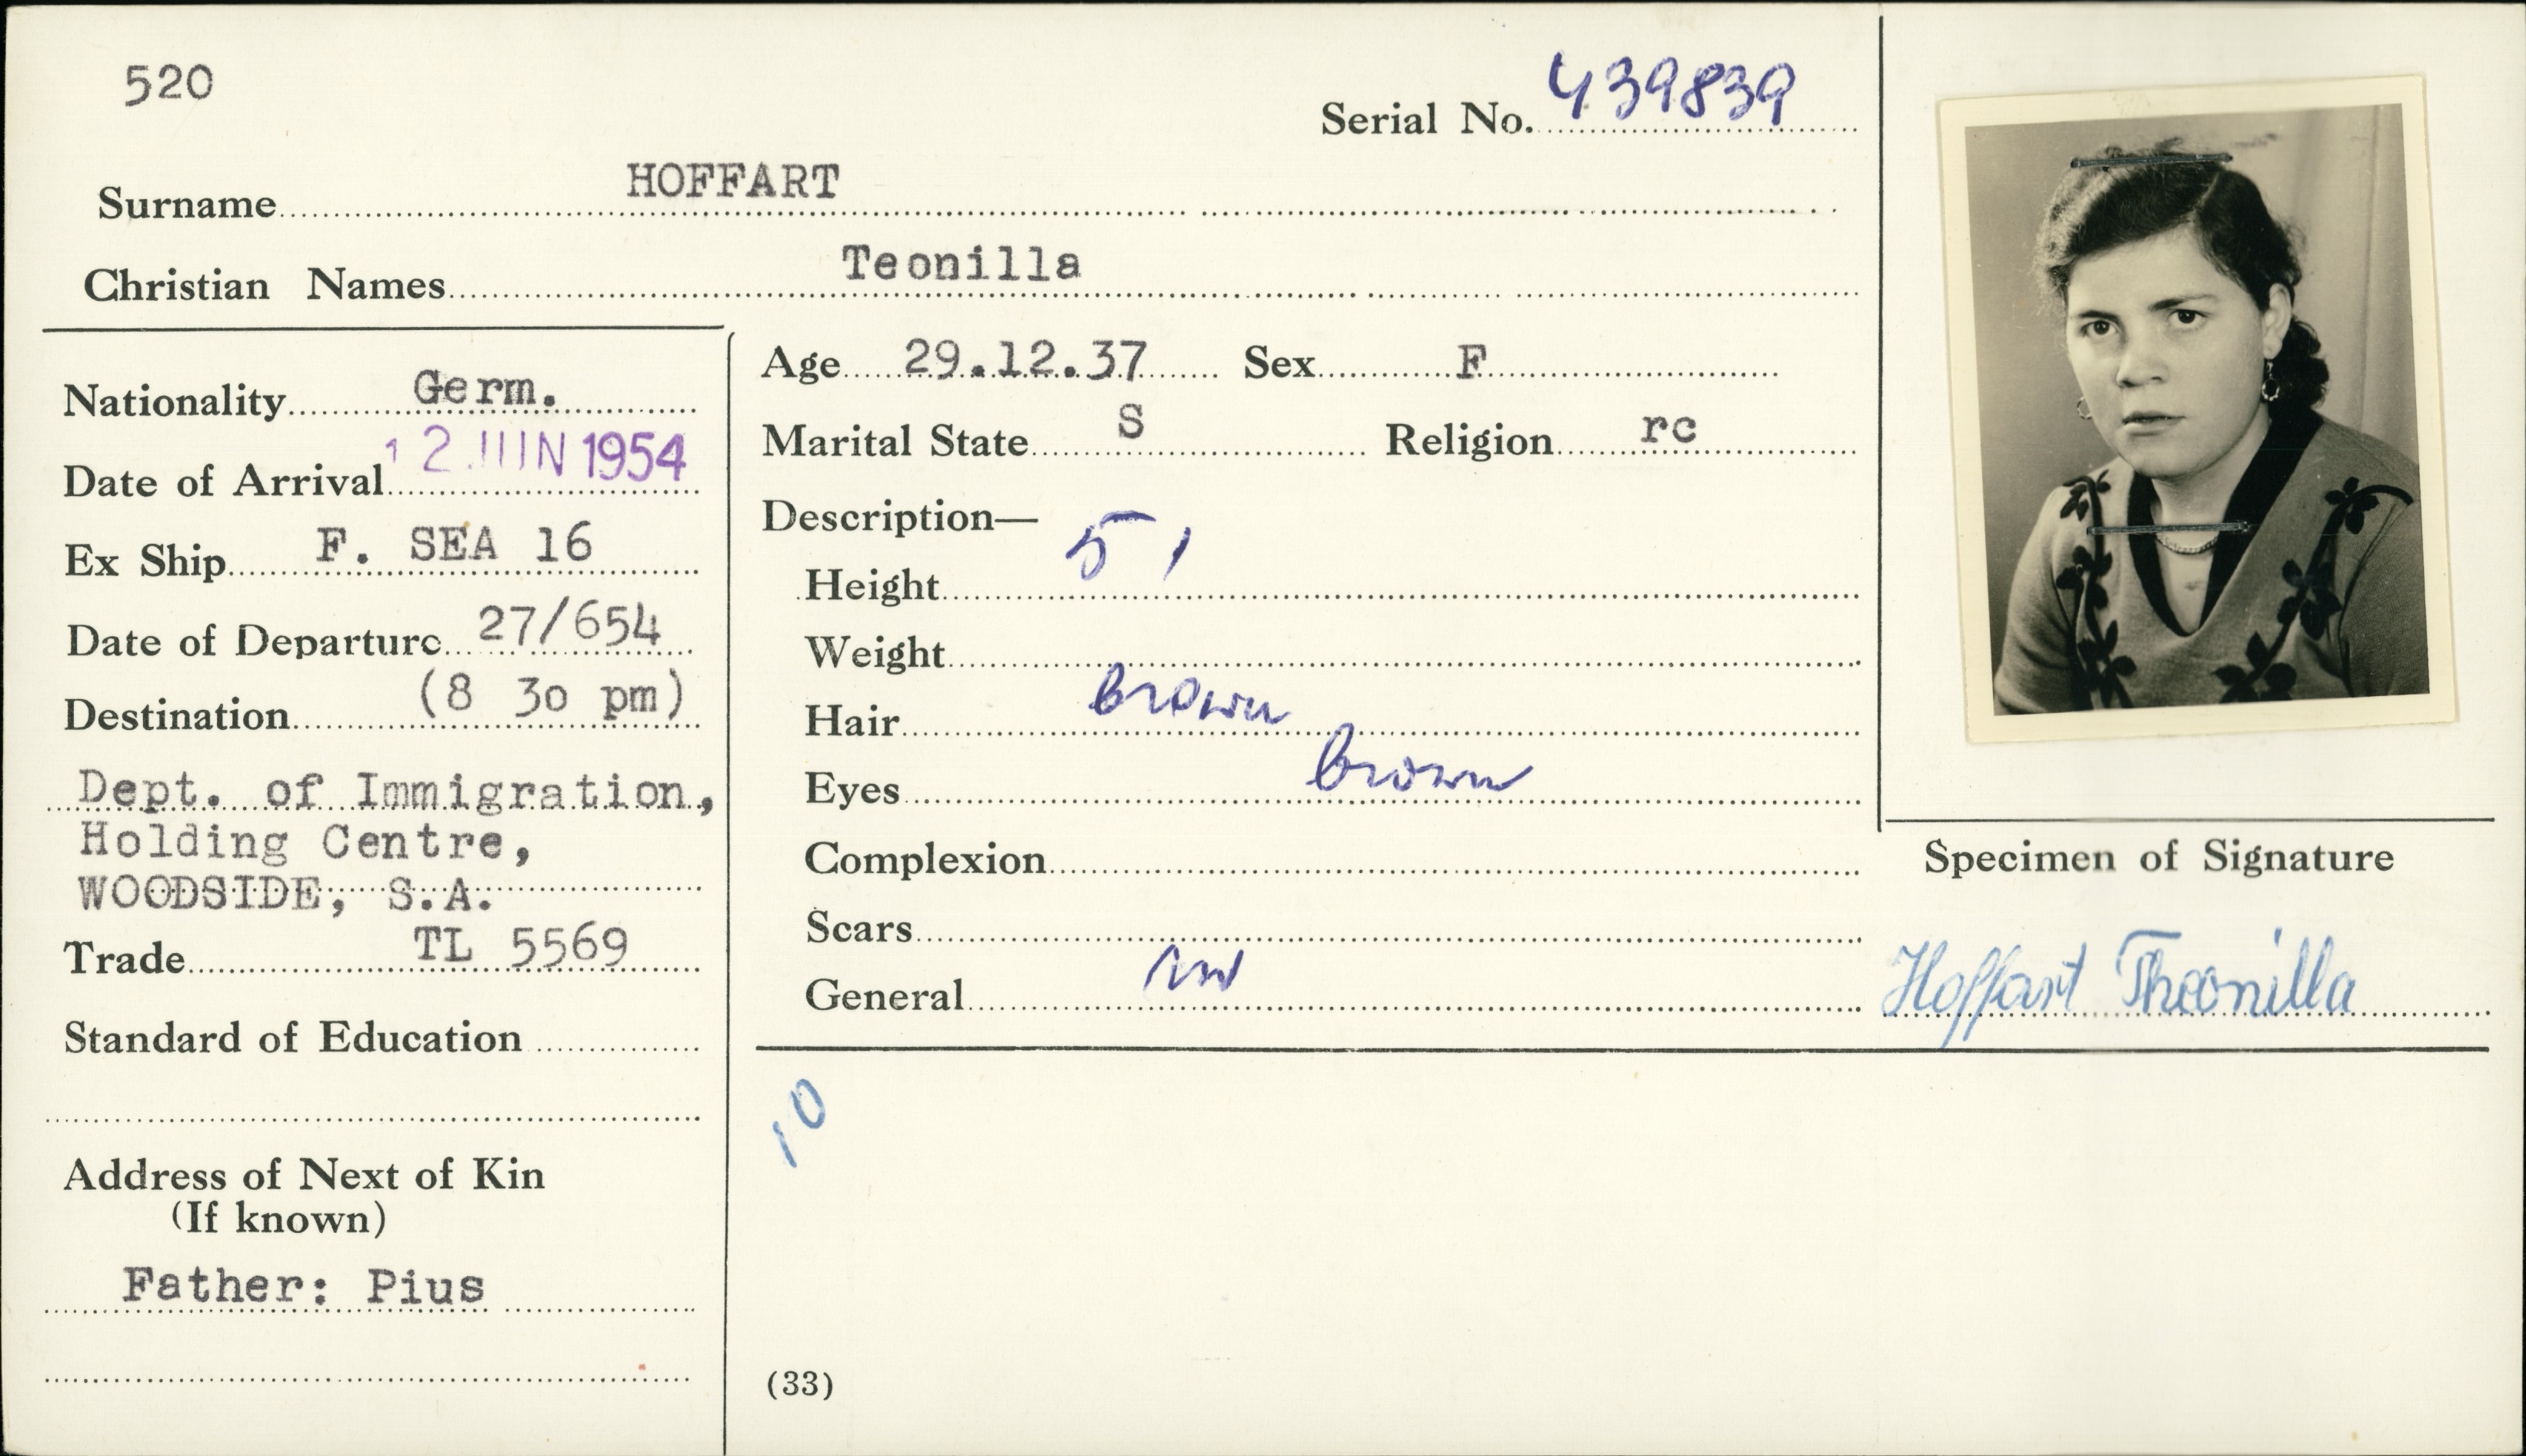 520
Serial No. 439839
Surname HOFFART
Christian Names Teonilla
Nationality Germ.
Date of Arrival 12 JUN 1954
Ex Ship F. SEA 16
Date of Departure 27/654
Destination (8 30 pm)
Dept. of Immigration,
Holding Centre,
WOODSIDE, S.A.
Trade TL 5569
Standard of Education
Address of Next of Kin
(If known)
Father: Pius
Age 29.12.37 Sex F
Marital State S Religion rc
Description—
Height 5 1
Weight
Hair brown
Eyes brown
Complexion
Scars
General
10
(33)
Specimen of Signature
Hoffart Theonilla